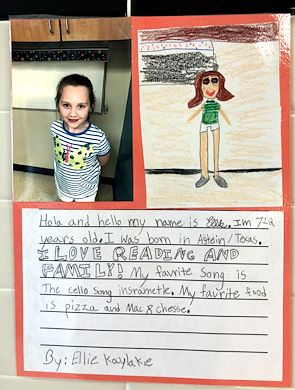 Hola and hello my name is Ellie. Im 7½
years old. I was born in Astein, Texas.
I LOVE READING AND
FAMILY! My favrite song is
The cello song insrametle. My favrite food
is pizza and Mac & chesse.
By: Ellie Kaylakie